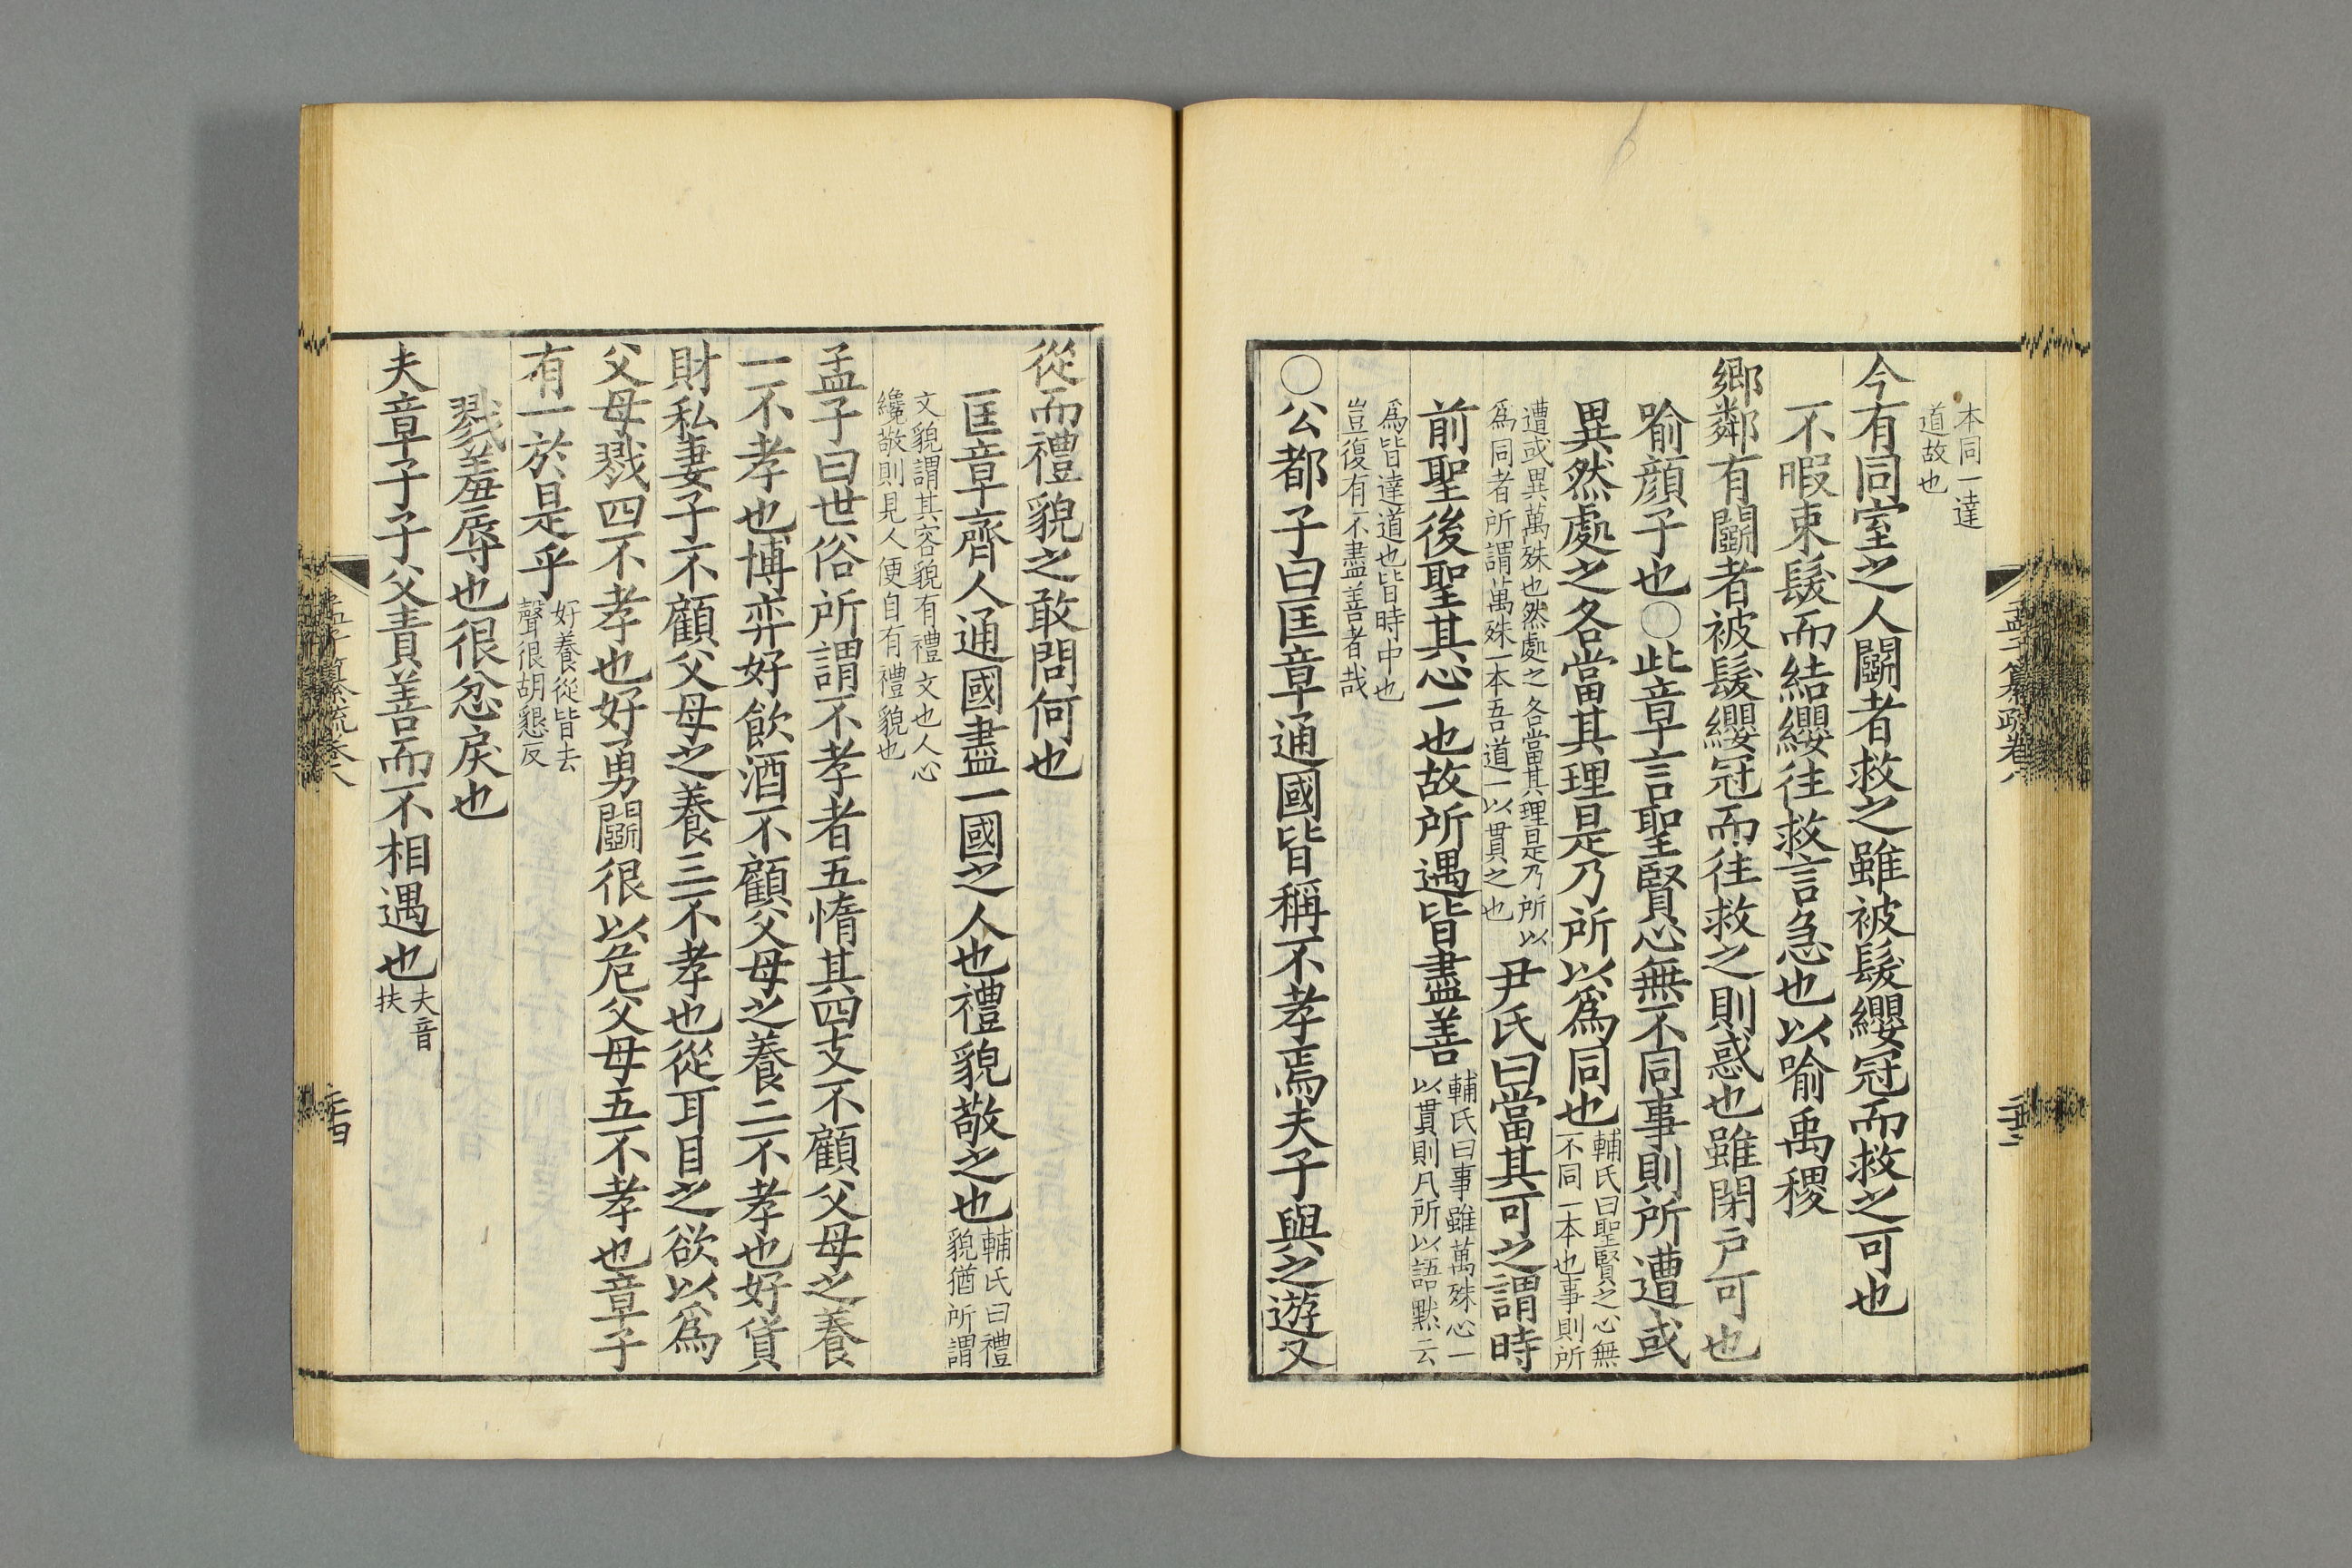 本同一達
道故也
今有同室之人鬬者救之雖被髮纓冠而救之可也
不暇束髮而結纓往救言急也以喻禹稷
鄉鄰有鬬者被髮纓冠而往救之則惑也雖閉戸可也
喻顔子也〇此章言聖賢心無不同事則所遭或
異然處之各當其理是乃所以爲同也
輔氏曰聖賢之心無
不同一本也事則所
遭或異萬殊也然處之各當其理是乃所以
爲同者所謂萬殊一本吾道一以貫之也
尹氏曰當其可之謂時
前聖後聖其心一也故所遇皆盡善
輔氏曰事雖萬殊心一
以貫則凡所以語默云
爲皆達道也皆時中也
豈復有不盡善者哉
〇公都子曰匡章通國皆稱不孝焉夫子與之遊又
孟子纂疏卷八
從而禮貌之敢問何也
匡章齊人通國盡一國之人也禮貌敬之也
輔氏曰禮
貌猶所謂
文貌謂其容貌有禮文也人心
纔敬則見人便自有禮貌也
孟子曰世俗所謂不孝者五惰其四支不顧父母之養
一不孝也博弈好飲酒不顧父母之養二不孝也好貨
財私妻子不顧父母之養三不孝也從耳目之欲以爲
父母戮四不孝也好勇鬬很以危父母五不孝也章子
有一於是乎
好養從皆去
聲很胡懇反
戮羞辱也很忿戾也
夫章子子父責善而不相遇也
夫音
扶
孟子纂疏卷八